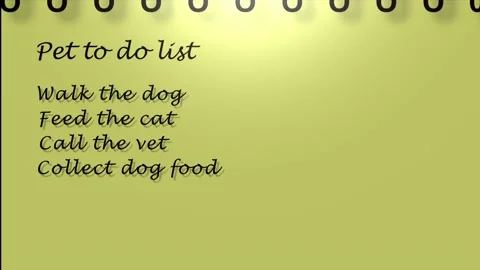 Pet to do list
Walk the dog
Feed the cat
Call the vet
Collect dog food